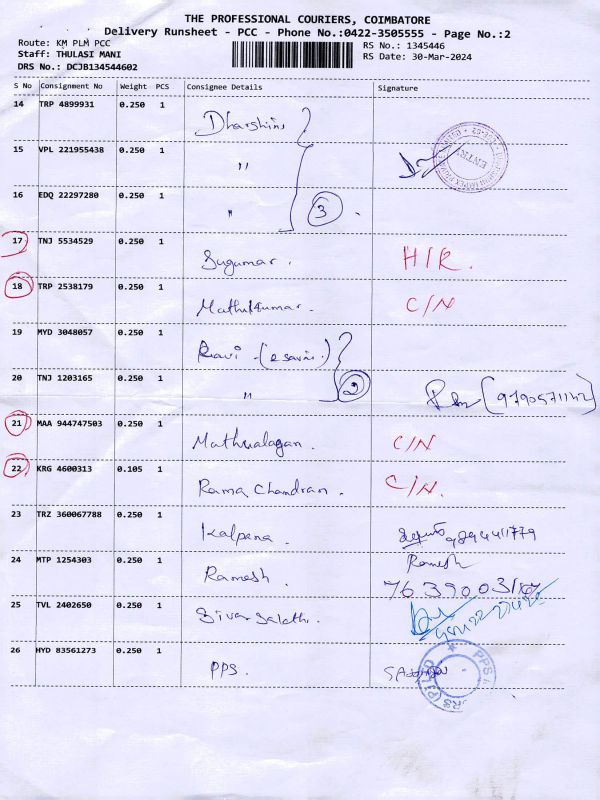 THE PROFESSIONAL COURIERS, COIMBATORE
Delivery Runsheet - PCC - Phone No.:0422-3505555 - Page No.:2
Route: KM PLM PCC
RS No.: 1345446
Staff: THULASI MANI
RS Date: 30-Mar-2024
DRS No.: DCJB134544602
S No Consignment No Weight PCS Consignee Details Signature
14 TRP 4899931 0.250 1 Dharshini
15 VPL 221955438 0.250 1 "
16 EDQ 22297280 0.250 1 " 3
17 TNJ 5534529 0.250 1 Sugumar. H/R.
18 TRP 2538179 0.250 1 Mathukumar. C/N
19 MYD 3048057 0.250 1 Ravi
20 TNJ 1203165 0.250 1 " 2
21 MAA 944747503 0.250 1 Mathualagan. C/N
22 KRG 4600313 0.105 1 Rama Chandran. C/N.
23 TRZ 360067788 0.250 1 Kalpana.
24 MTP 1254303 0.250 1 Ramesh. Ramesh
25 TVL 2402650 0.250 1
26 HYD 83561273 0.250 1 PPS.